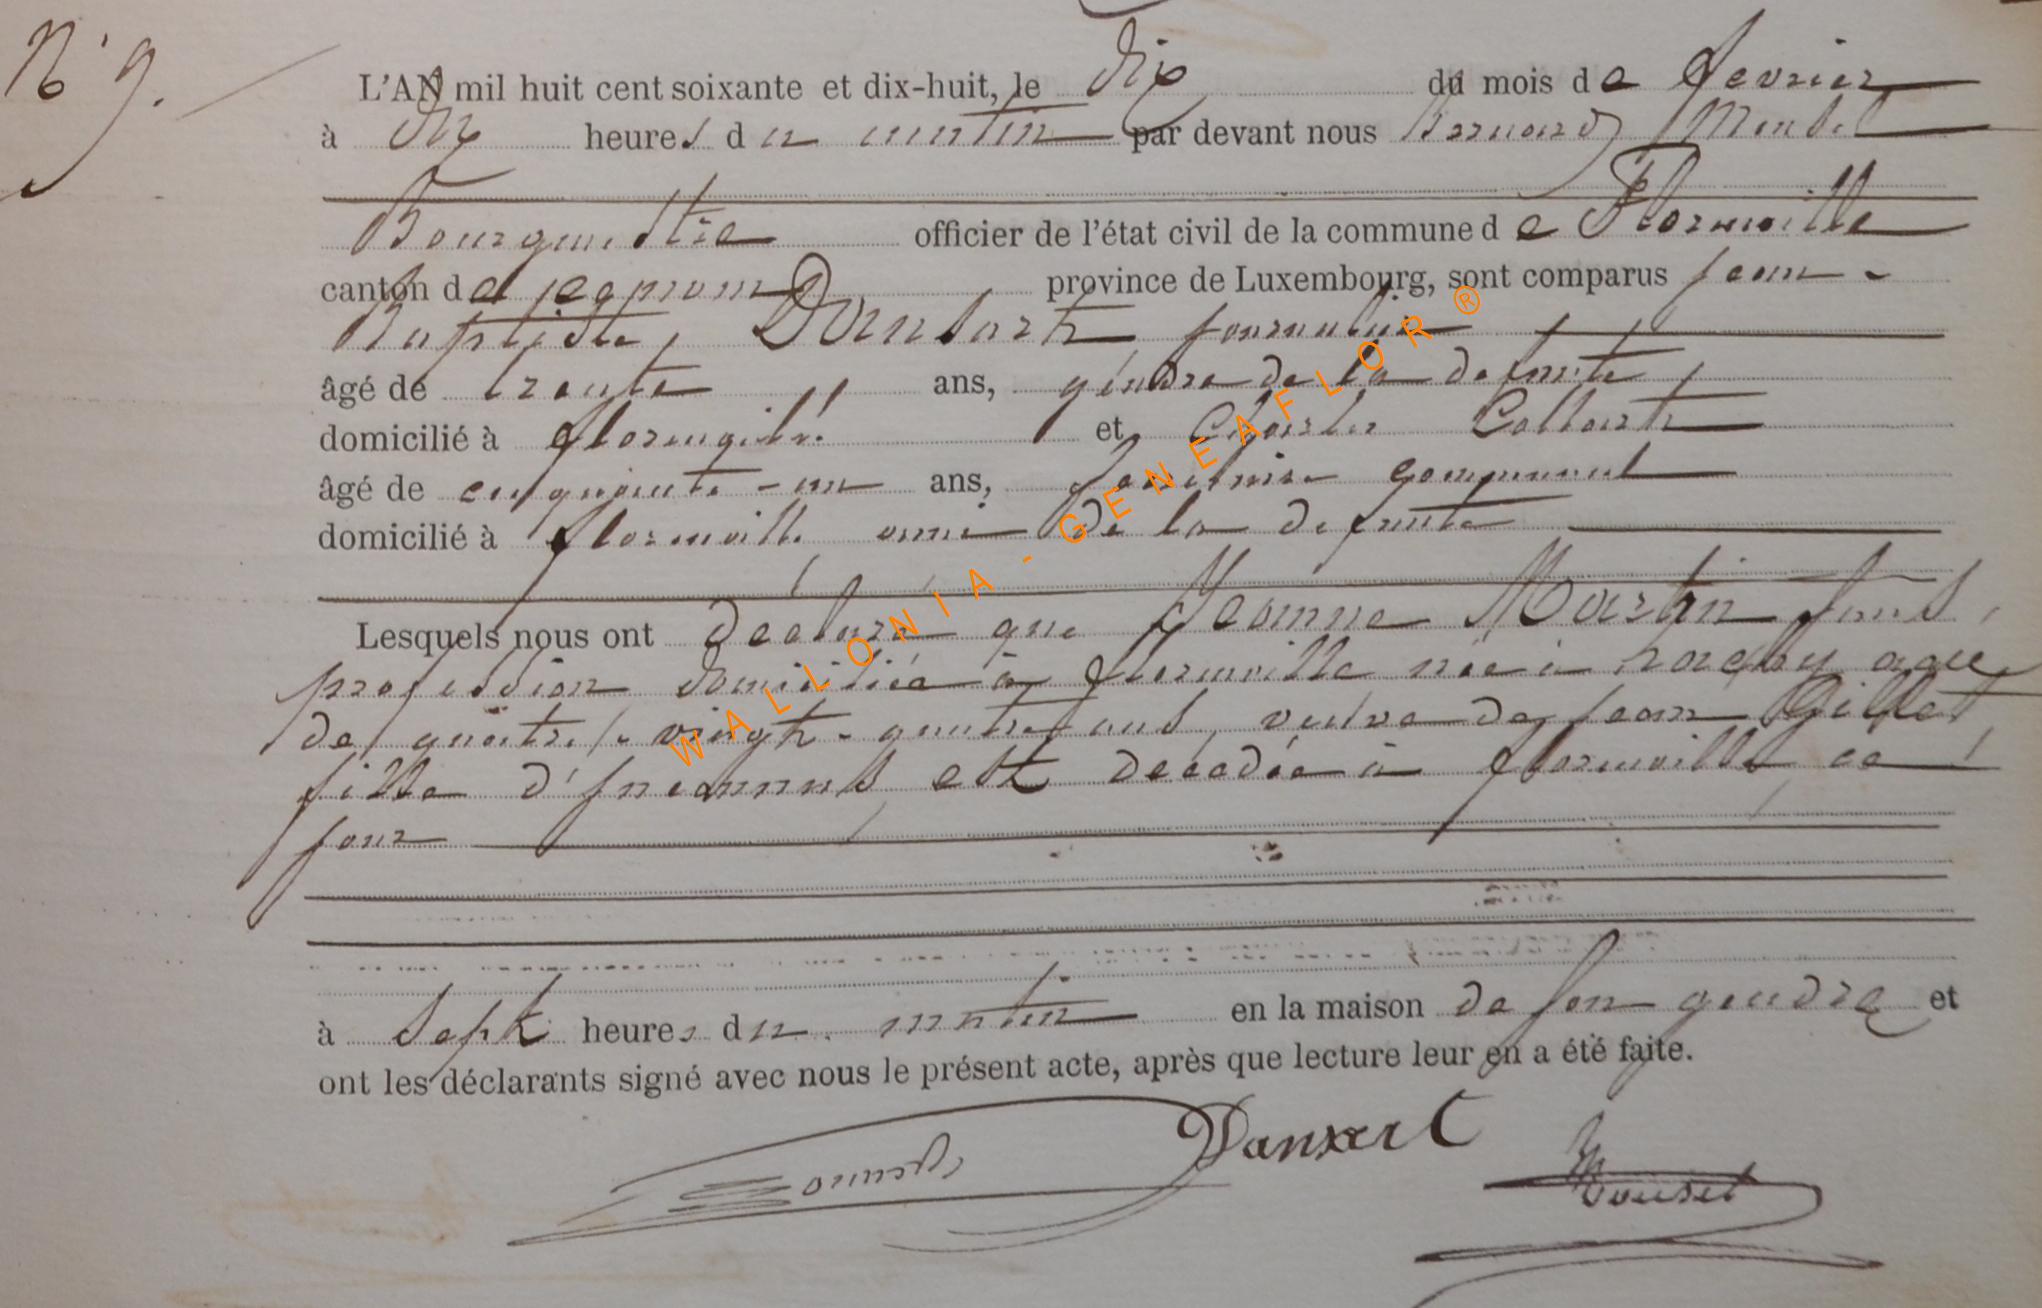 N° 9.
L'AN mil huit cent soixante et dix-huit, le dix du mois de fevrier
à dix heures du matin par devant nous Bernard
Bourgmestre officier de l'état civil de la commune de Florenville
canton de province de Luxembourg, sont comparus jean-
Baptiste Dansart journalier
âgé de trente ans, gendre de la defunte
domicilié à florenville et Charles Collart
âgé de cinquante-un ans, communal
domicilié à florenville ami de la defunte
Lesquels nous ont déclaré que Jeanne Martin sans
profession domiciliée à florenville née à agée
de quatre-vingt-quatre ans, veuve de jean Gillet
fille d'inconnus, est decedée à florenville ce
jour
à sept heures du matin en la maison de son gendre et
ont les déclarants signé avec nous le présent acte, après que lecture leur en a été faite.
Dansart
WALLONIA - GENEAFLOR ®